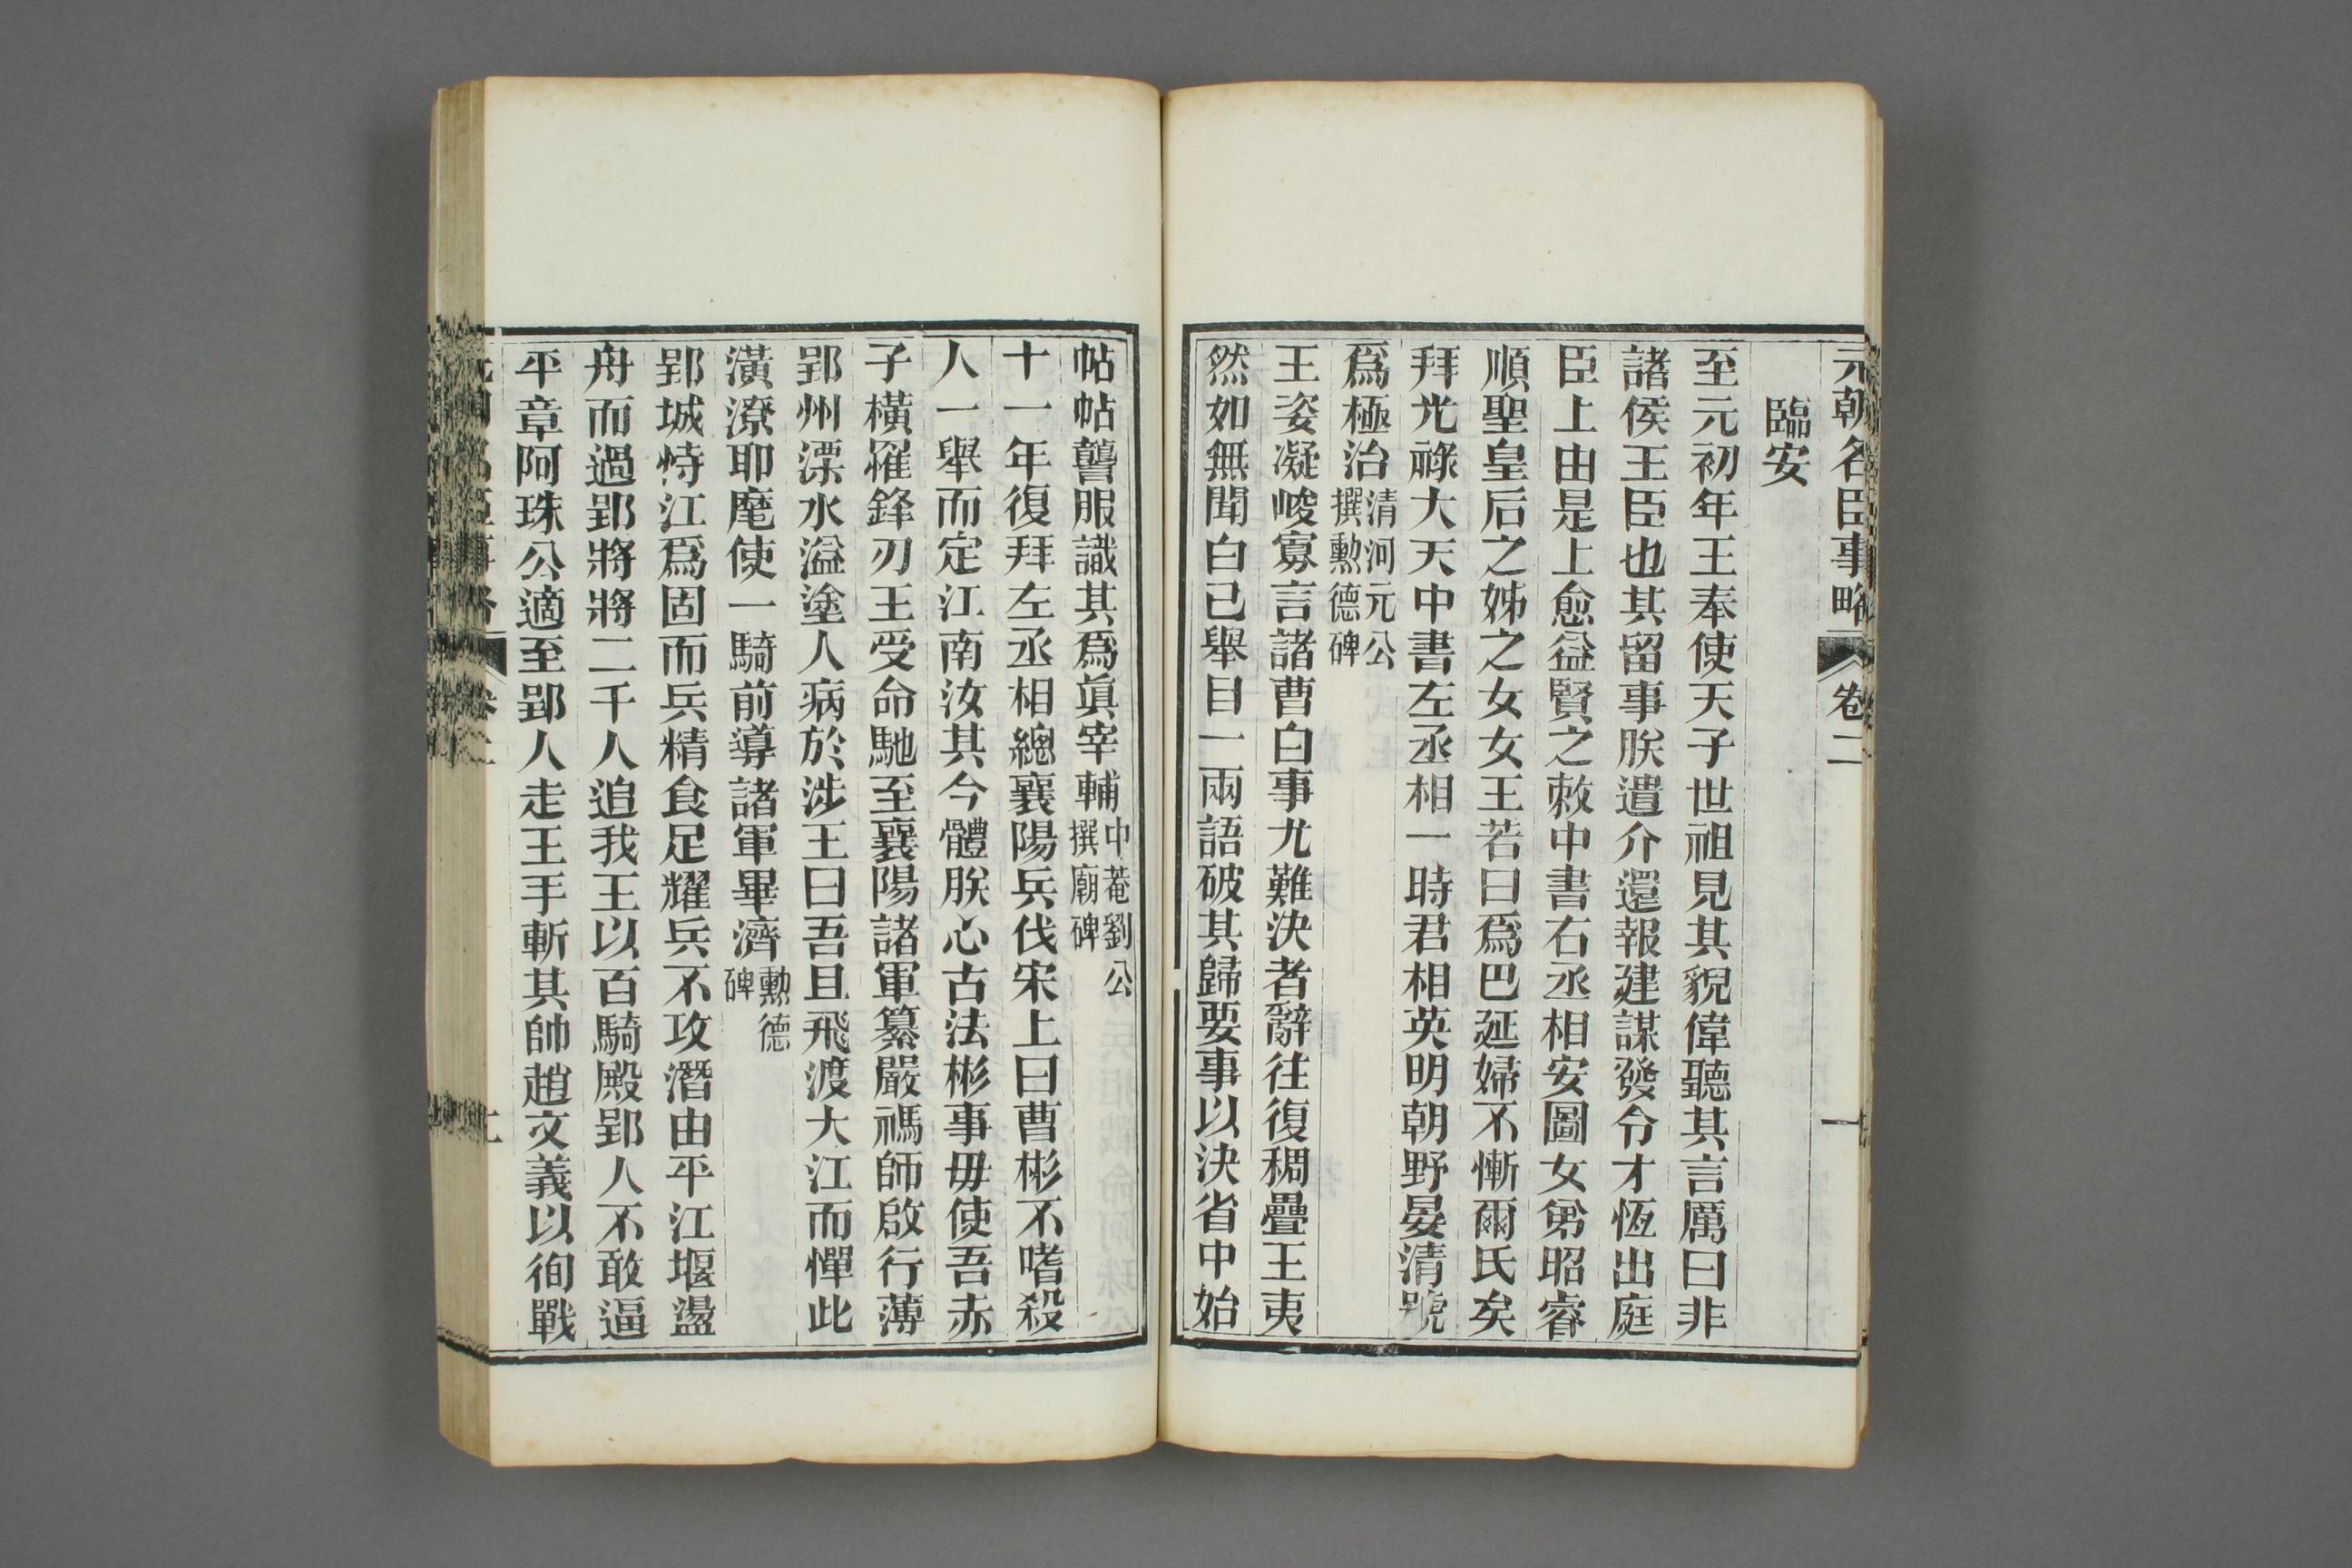 元朝名臣事略 卷二 一
臨安
至元初年王奉使天子世祖見其貌偉聽其言厲曰非
諸侯王臣也其留事朕遣介還報建謀發令才恆出庭
臣上由是上愈益賢之敕中書右丞相安圖女弟昭睿
順聖皇后之姊之女女王若曰爲巴延婦不慚爾氏矣
拜光祿大夫中書左丞相一時君相英明朝野晏清號
爲極治清河元公撰勳德碑
王姿凝峻寡言諸曹白事尤難決者辭往復稠疊王夷
然如無聞白已舉目一兩語破其歸要事以決省中始
帖帖讋服識其爲眞宰輔中菴劉公撰廟碑
十一年復拜左丞相總襄陽兵伐宋上曰曹彬不嗜殺
人一舉而定江南汝其今體朕心古法彬事毋使吾赤
子橫罹鋒刃王受命馳至襄陽諸軍纂嚴禡師啟行薄
郢州溧水溢塗人病於涉王曰吾且飛渡大江而憚此
潢潦耶麾使一騎前導諸軍畢濟勳德碑
郢城恃江爲固而兵精食足耀兵不攻潛由平江堰盪
舟而過郢將將二千人追我王以百騎殿郢人不敢逼
平章阿珠公適至郢人走王手斬其帥趙文義以徇戰